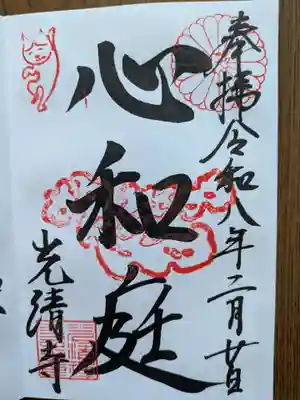 奉拝 令和八年二月廿日
心和庭
光清寺